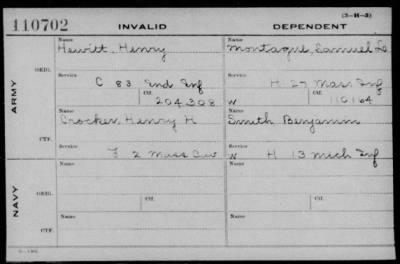 (3-H-3)
110702 INVALID DEPENDENT
Name Name
Hewitt, Henry Montague, Samuel L
ORIG. Service Service
C 83 Ind Inf H 27 Mass Inf
Ctf. Ctf.
204,308 W 110164
ARMY
Name Name
Crocker, Henry H Smith Benjamin
CTF. Service Service
F 2 Mass Cav W H 13 Mich Inf
Name Name
NAVY
ORIG. Service Service
Ctf. Ctf.
Name Name
CTF. Service Service